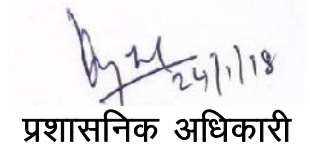 24/1/18
प्रशासनिक अधिकारी